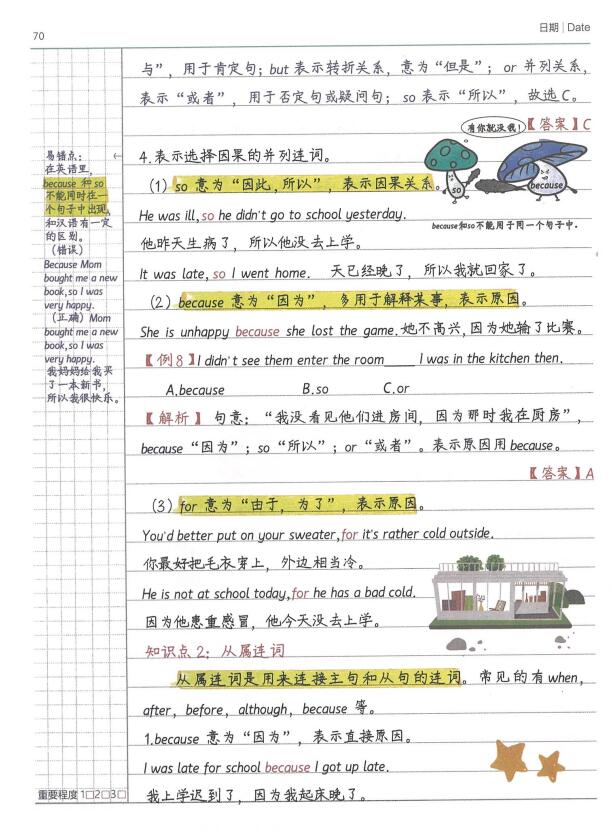 70
日期 | Date
与”，用于肯定句；but 表示转折关系，意为“但是”；or 并列关系，
表示“或者”，用于否定句或疑问句；so 表示“所以”，故选C。
【答案】C
有你就没我！
so
because
because和so不能用于同一个句子中.
4.表示选择因果的并列连词。
（1）so 意为“因此，所以”，表示因果关系。
He was ill,so he didn't go to school yesterday.
他昨天生病了，所以他没去上学。
It was late, so I went home. 天已经晚了，所以我就回家了。
（2）because 意为“因为”，多用于解释某事，表示原因。
She is unhappy because she lost the game.她不高兴,因为她输了比赛。
【例8】I didn't see them enter the room____ I was in the kitchen then.
A.because B.so C.or
【解析】句意：“我没看见他们进房间，因为那时我在厨房”，
because“因为”；so“所以”；or“或者”。表示原因用because。
【答案】A
（3）for 意为“由于，为了”，表示原因。
You'd better put on your sweater,for it's rather cold outside.
你最好把毛衣穿上，外边相当冷。
He is not at school today,for he has a bad cold.
因为他患重感冒，他今天没去上学。
知识点2：从属连词
从属连词是用来连接主句和从句的连词。常见的有when,
after, before, although, because 等。
1.because 意为“因为”，表示直接原因。
I was late for school because I got up late.
我上学迟到了，因为我起床晚了。
易错点：
←
在英语里，
because 和 so
不能同时在一
个句子中出现,
和汉语有一定
的区别。
（错误）
Because Mom
bought me a new
book,so I was
very happy.
（正确）Mom
bought me a new
book,so I was
very happy.
我妈妈给我买
了一本新书，
所以我很快乐。
重要程度 1□2□3□